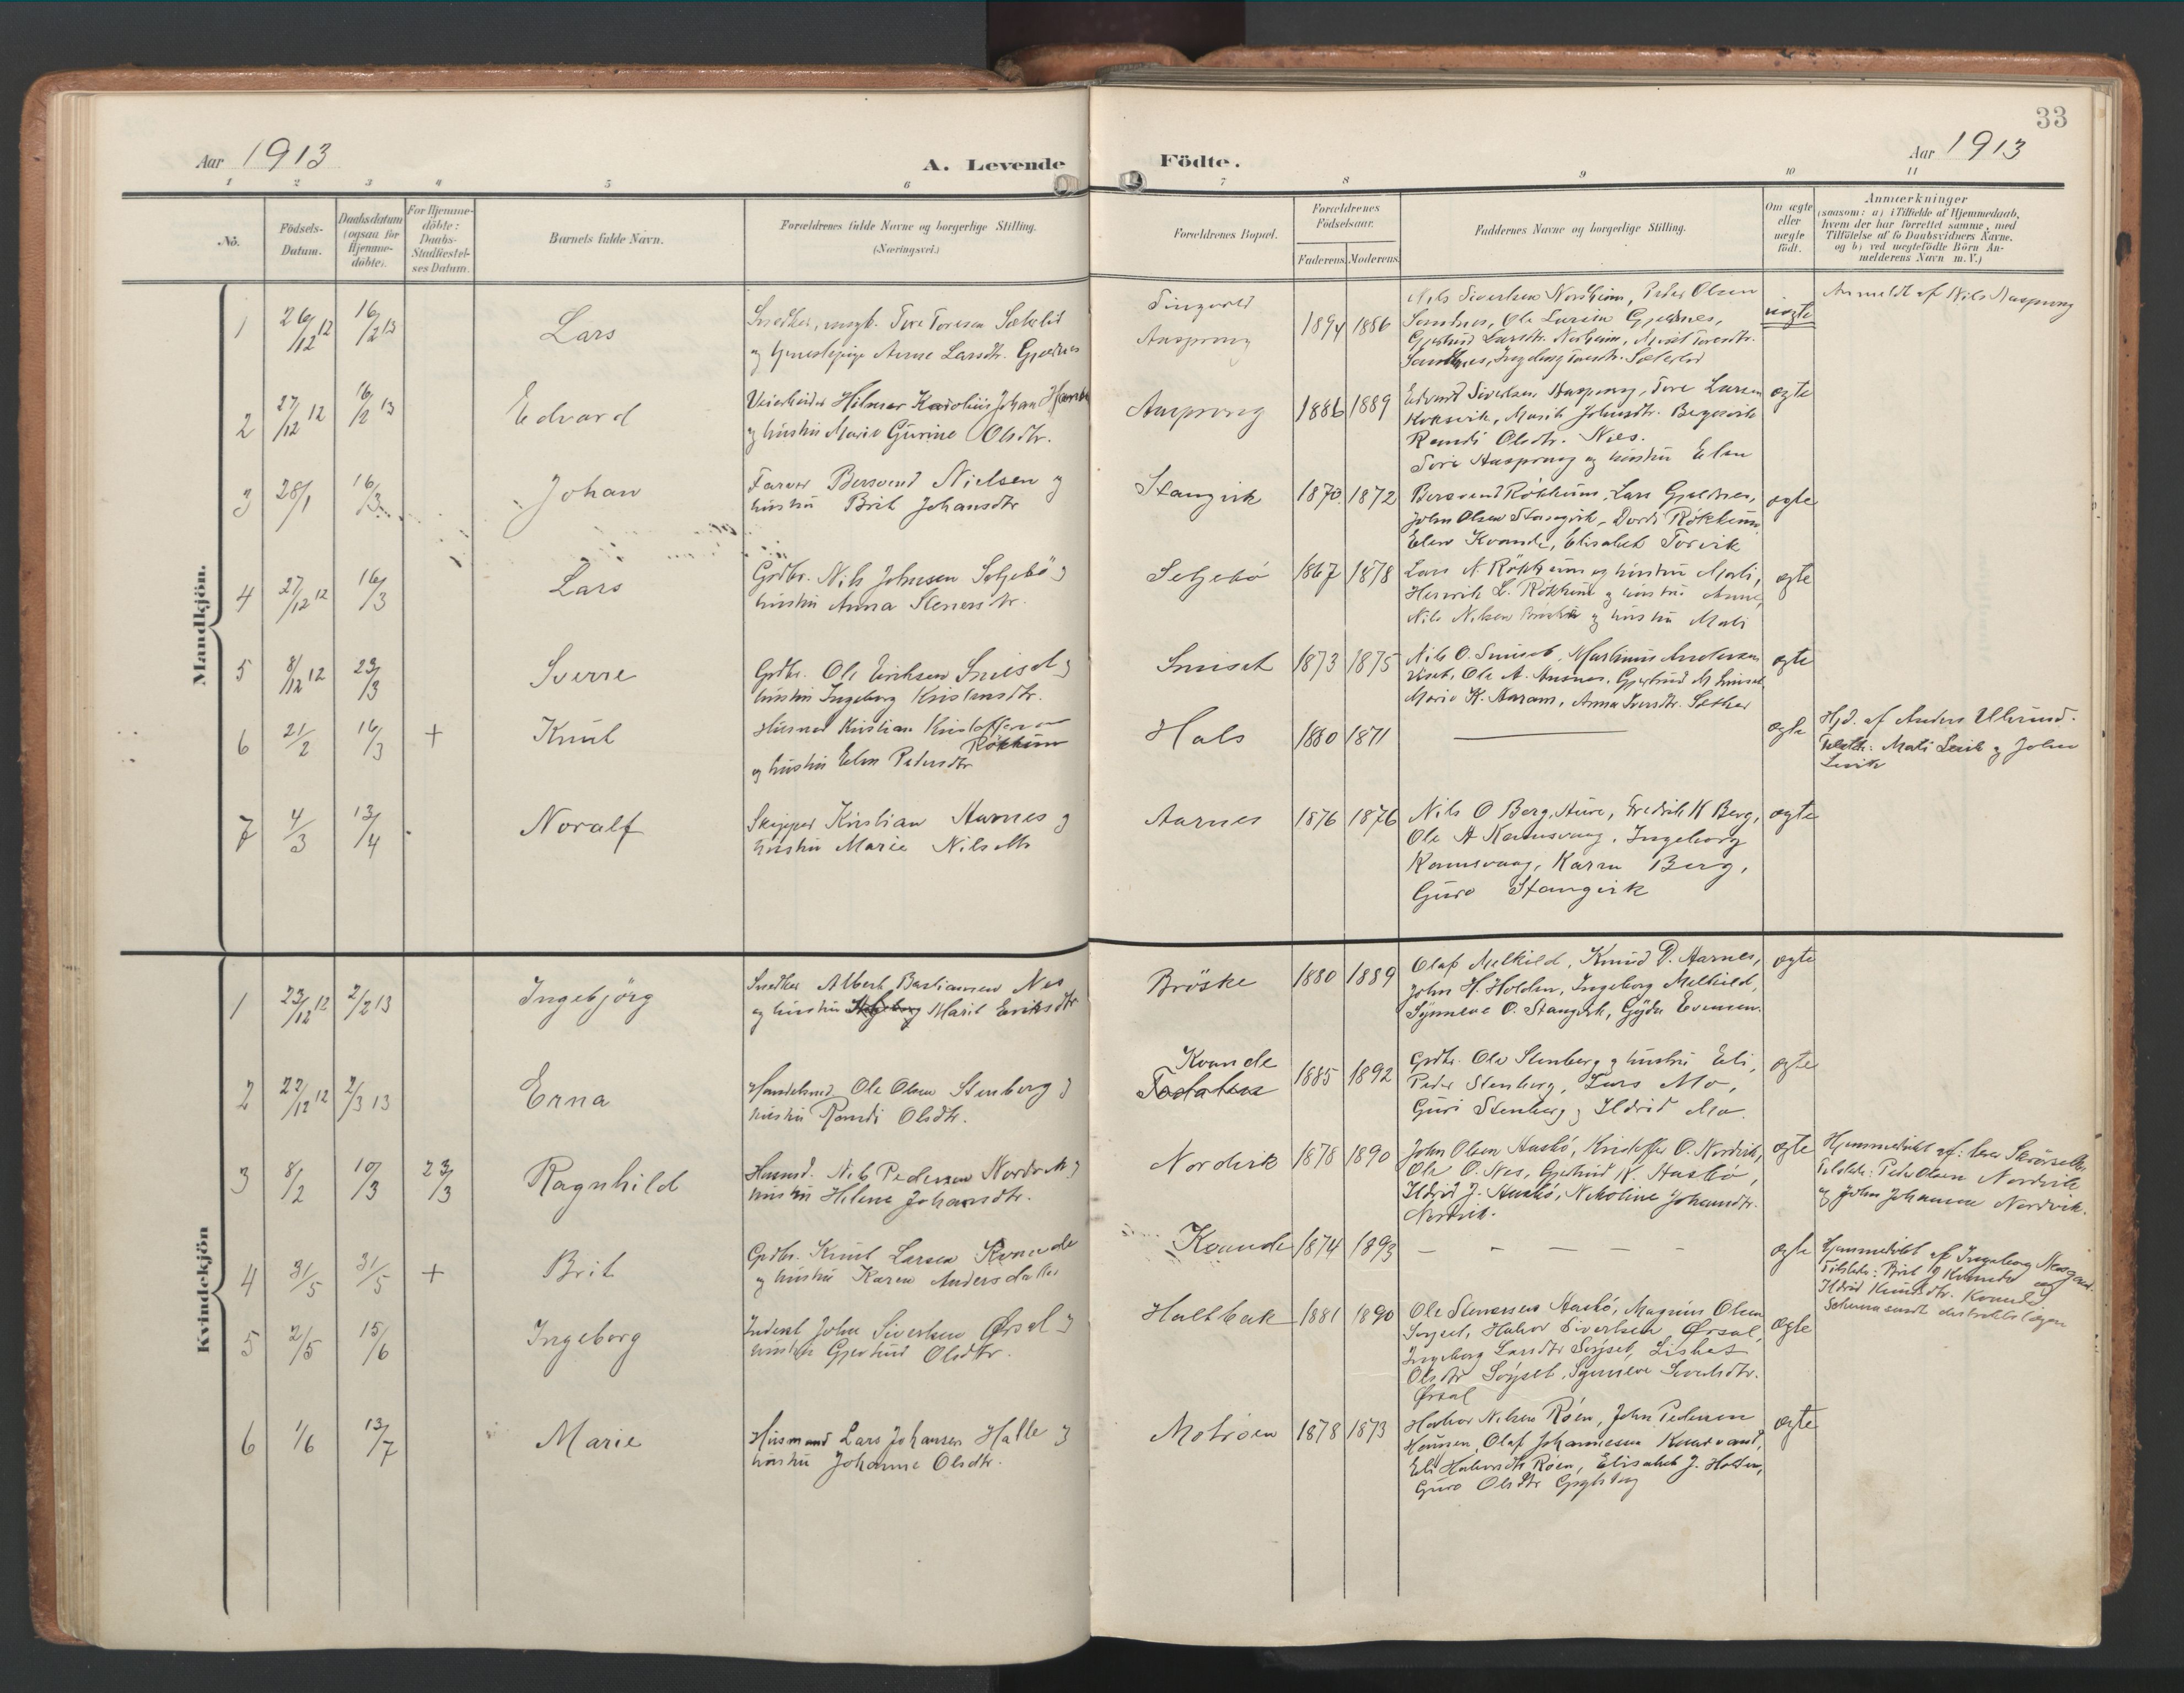 33
Aar 1913
A. Levende Födte.
Aar 1913
1 2 3 4 5 6 7 8 9 10 11
No.
Födsels-
Datum.
Daabsdatum
(ogsaa for
Hjemme-
döbte).
For Hjemme-
döbte:
Daabs-
Stadfæstel-
ses Datum.
Barnets fulde Navn.
Forældrenes fulde Navne og borgerlige Stilling.
(Næringsvei.)
Forældrenes Bopæl.
Forældrenes
Födselsaar.
Faderens. Moderens.
Faddernes Navne og borgerlige Stilling.
Om ægte
eller
uægte
født.
Anmærkninger
(saasom: a) i Tilfælde af Hjemmedaab,
hvem der har forrettet samme, med
Tilföielse af to Daabsvidners Navne,
og b) ved uægtefödte Börn An-
melderens Navn m. V.)
Mandkjön.
1 26/12 12 16/2 13 Lars
Snedker, ungk. Tore Toresen Sæterlid
og Anne Larsdtr. Gjeldnes
Tingvold
Aasprong
1894 1886
Nils Sivertsen Nordheim, Peder Olsen
Sandnes, Ole Larsen Gjeldnes,
Gjertrud Larsdtr. Norheim, Marit Toresdtr.
Sandnes, Ingeborg Toresdr. Sæterlid
uægte
Anmeldt af Nils Aasprong
2 27/12 12 16/2 13 Edvard
Veiarbeider Hilmar Karolius Johan
og hustru Marie Gurine Olsdtr.
Aasprong
1886 1889
Edvard Sivertsen Aasprong, Tore Larsen
Koksvik, Marit Johnsdtr. Bergsvik
Randi Olsdtr. Nies.
ægte
3 28/1 16/3 Johan
Farver Bersvend Nielsen og
hustru Brit Johansdtr
Stangvik
1870 1872
Tore Aasprong og hustru Elen
Bersvend Rökkum, Lars Gjeldnes,
John Olsen Stangvik, Dordi Rökkum
Elen Kvande, Elisabet Torvik
ægte
4 27/12 12 16/3 Lars
Grdbr. Nils Johnsen Seljebö og
hustru Anna Stenersdtr.
Seljebö
1867 1878
Lars N. Rökkum og hustru Mali,
Henrik L. Rökkum og hustru Anne,
Nils Nilsen Bröske og hustru Mali
ægte
5 8/12 12 23/3 Sverre
Grdbr. Ole Eriksen Smiset og
hustru Ingeborg Kristensdtr.
Smiset
1873 1875
Nils O. Smiset, Martinus Andersen
Ole A. Husnes, Gjertrud M Smiset
Marie K. Aaram, Anna Iversdtr. Sæther
ægte
6 21/2 16/3 + Knut
Husmd Kristian Kristoffersen
Rökkum
og hustru Elen Pedersdtr
Hals
1880 1871
ægte
Hjd. af Anders Ulvund.
Mali Levik og John
Levik
7 4/3 13/4 Noralf
Skipper Kristian Aarnes og
hustru Marie Nilsdtr
Aarnes
1876 1876
Nils O Berg, Aure, Fredrik K Berg,
Ole A Ramsvaag, Ingeborg
Ramsvaag, Karen Berg,
Guro Stangvik
ægte
Kvindekjön
1 23/12 12 2/2 13 Ingebjörg
Snedker Albert Bastiansen Nes
og hustru Marit Eriksdtr
Bröske
1880 1889
Olaf Melkild, Knud P. Aarnes,
John H. Holden, Ingeborg Melkild,
Synneve O. Stangvik, Gyda Evensen.
ægte
2 22/12 12 2/3 13 Erna
Handelsmd Ole Olsen Stenberg og
hustru Randi Olsdtr.
Kvande
1885 1892
Grdbr. Ole Stenberg og hustru Eli,
Peder Stenberg, Lars Mo,
Guri Stenberg og Ildrid Mo.
ægte
3 8/2 10/3 23/3 Ragnhild
Husmd. Nils Pedersen Nordvik og
hustru Helene Johansdtr.
Nordvik
1878 1890
John Olsen Aasbö, Kristoffer O. Nordvik,
Ole O. Nes, Gjertrud K. Aasbö,
Ildrid J. Aasbö, Nikoline Johansdtr.
Nordvik.
ægte
Hjemmedöbt af:
Peder Olsen Nordvik
og John Johansen Nordvik.
4 31/5 31/5 + Brit
Grdbr. Knut Larsen Kvande
og hustru Karen Andersdatter
Kvande
1874 1893
ægte
Hjemmedöbt af Ingeborg
Brit Kvande og
Ildrid Knudsdtr. Kvande
Schema sendt distriktslægen
5 2/5 15/6 Ingeborg
Inderst John Sivertsen Ørsal og
hustru Gjertrud Olsdtr.
Holtbak
1881 1890
Ole Stenersen Aasbö, Magnus Olsen
Söyset, Halvor Sivertsen Ørsal,
Ingeborg Larsdtr Söyset, Lisbet
Olsdtr Söyset, Synneve Sivertsdtr.
Ørsal
ægte
6 1/6 13/7 Marie
Husmand Lars Johansen Halle og
hustru Johanne Olsdtr.
Motröen
1878 1873
Halvor Nilsen Röen, John Pedersen
Olaf Johannesen
Eli Halvorsdtr Röen, Elisabet J. Holten,
Guro Olsdtr
ægte